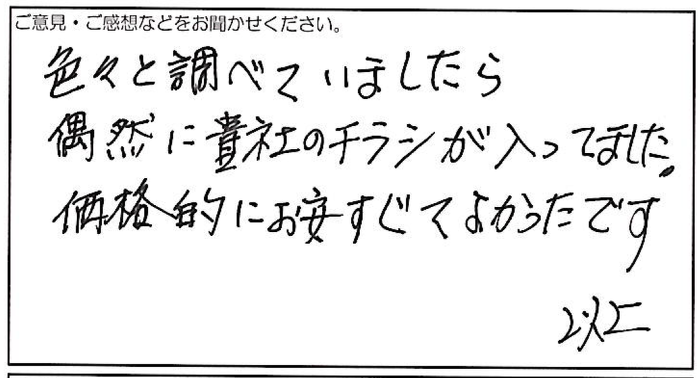 ご意見・ご感想などをお聞かせください。
色々と調べていましたら
偶然に貴社のチラシが入ってました。
価格的にお安すぐてよかったです
以上